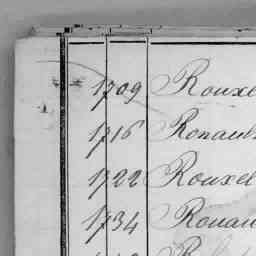 1709 Rouxel
1716 Renault
1722 Rouxel
1734 Rouau